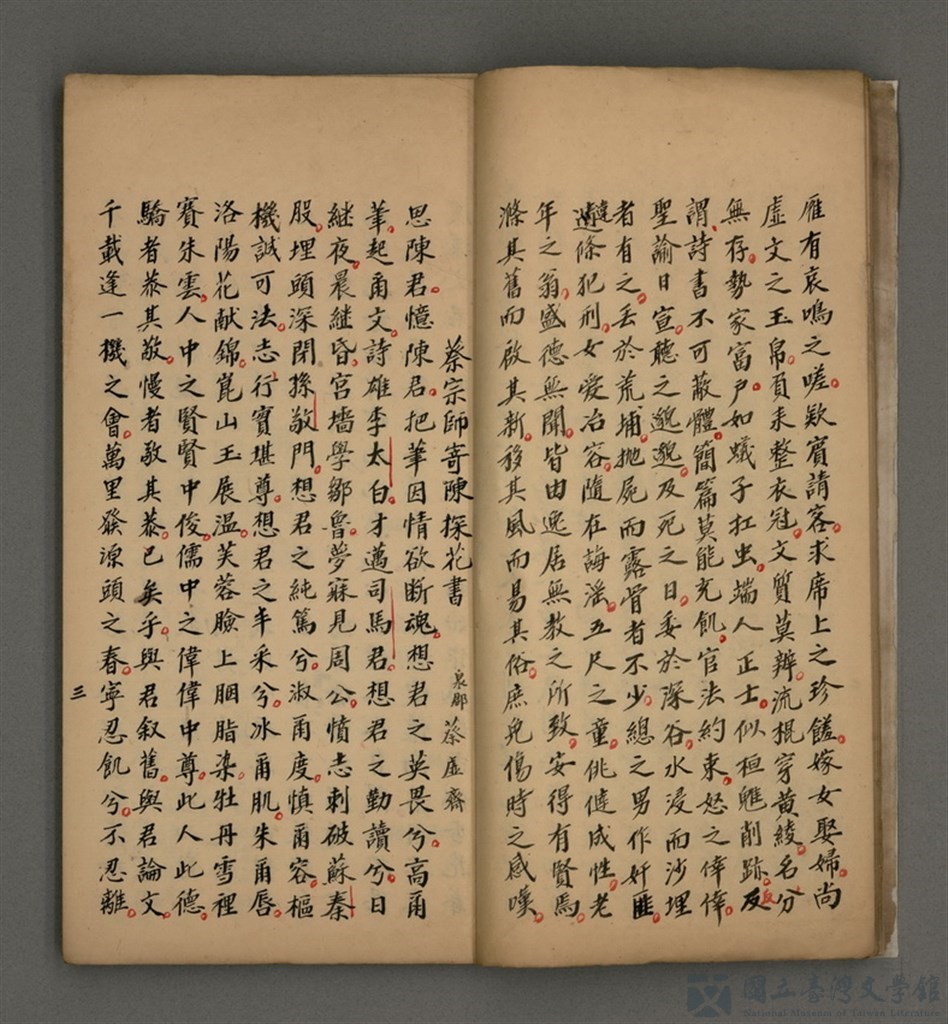 雁有哀鳴之嗟欵賓請客求席上之珍饈嫁女娶婦尚
虛文之玉帛頁未整衣冠文質莫辨流棍穿黃綾名分
無存勢家富戶如蟻子扛虫端人正士似桓魋削跡反
謂詩書不可蔽體簡篇莫能充飢官法約束怒之倖倖
聖諭日宣聽之邈邈及死之日委於深谷水浸而沙埋
者有之丢於荒埔抛屍而露骨者不少總之男作奸匪
違條犯刑女愛冶容隨在誨滛五尺之童佻健成性老
年之翁盛德無聞皆由逸居無教之所致安得有賢焉
滌其舊而啟其新移其風而易其俗庶免傷時之感嘆
蔡宗師寄陳探花書 泉郡蔡虛齋
思陳君憶陳君把筆因情欲断魂想君之英畏兮高甬
筆起甬文詩雄李太白才邁司馬君想君之勤讀兮日
継夜晨継昏宮墻學鄒魯夢寐見周公憤志刺破蘇秦
股埋頭深閉孫敬門想君之純篤兮淑甬度慎甬容樞
機誠可法志行實堪尊想君之丰采兮冰甬肌朱甬唇
洛陽花献錦崑山玉展温芙蓉臉上胭脂染牡丹雪裡
賽朱雲人中之賢賢中俊儒中之偉偉中尊此人此德
驕者恭其敬慢者敬其恭已矣乎與君叙舊與君論文
千載逢一機之會萬里發源頭之春寧忍飢兮不忍離
三
國立臺灣文學館
National Museum of Taiwan Literature